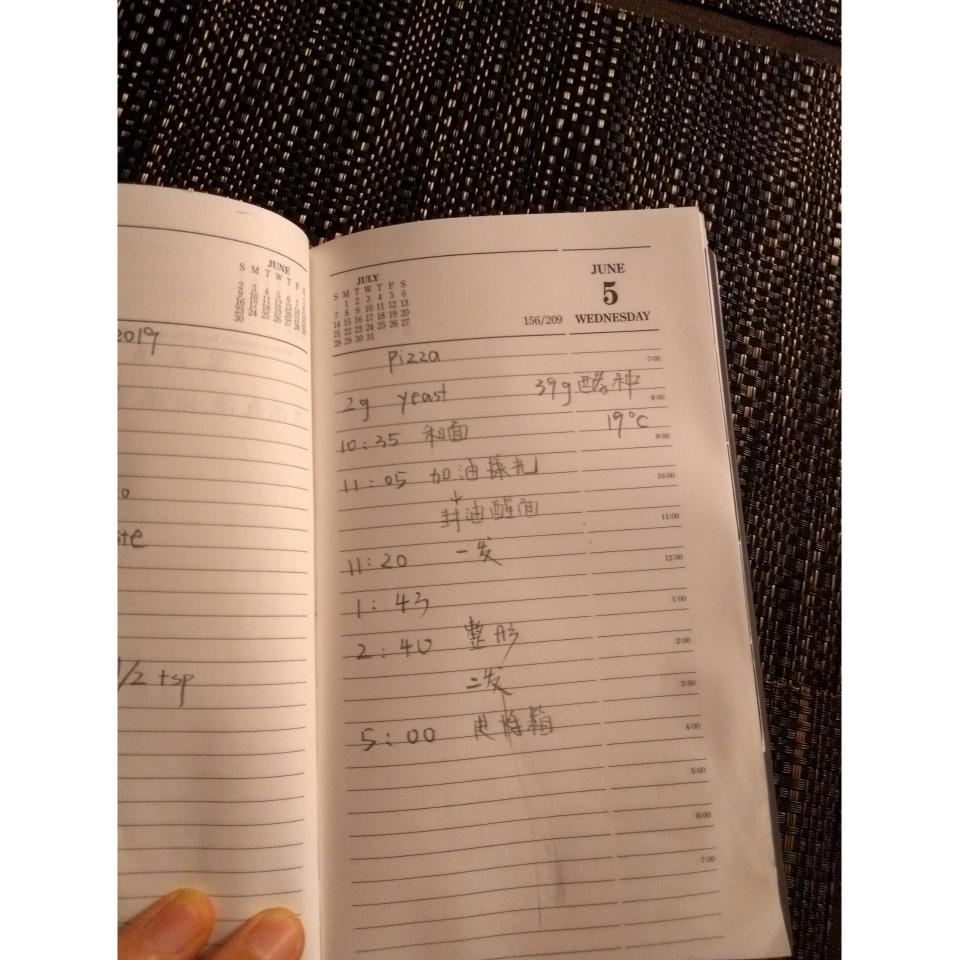 JUNE
S M T W T F S
2 3 4 5 6 7
9 10 11 12
16 17 18 19
23 24 25 26
30
2019
te
1/2 tsp
JULY
S M T W T F S
1 2 3 4 5 6
7 8 9 10 11 12 13
14 15 16 17 18 19 20
21 22 23 24 25 26 27
28 29 30 31
JUNE
5
156/209 WEDNESDAY
pizza
7:00
2g yeast 39g 酵种
8:00
10:35 和面 19°C
9:00
11:05 加油揉光
10:00
↓
封油醒面
11:00
11:20 一发
12:00
1:43
1:00
2:40 整形
2:00
二发
3:00
5:00 电烤箱
4:00
5:00
6:00
7:00